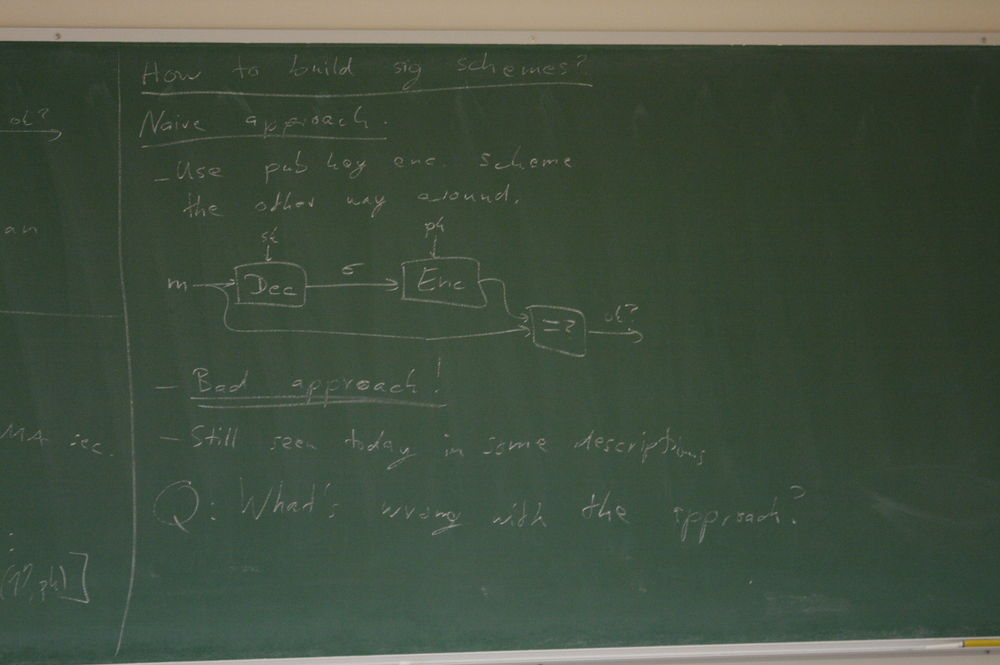 ok?
an
MA sec.
:
How to build sig schemes?
Naive approach.
- Use pub key enc. scheme
the other way around.
sk pk
m Dec σ Enc
=? ok?
- Bad approach!
- Still seen today in some descriptions
Q: What's wrong with the approach?